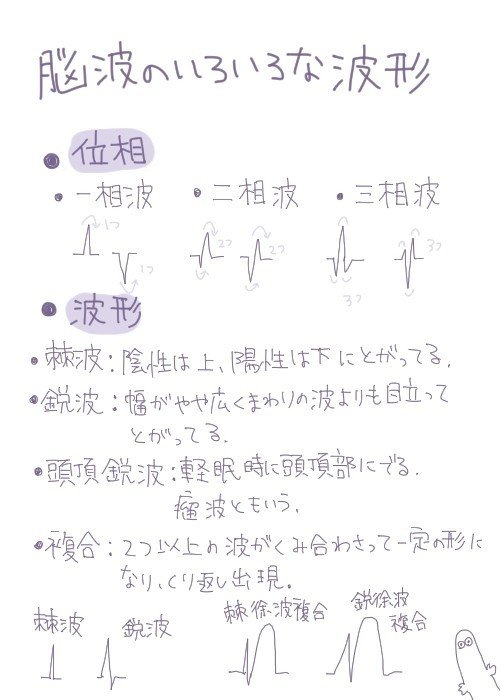 脳波のいろいろな波形
● 位相
・一相波 ・二相波 ・三相波
1つ 1つ 2つ 2つ 3つ 3つ
● 波形
・棘波：陰性は上、陽性は下にとがってる.
・鋭波：幅がやや広くまわりの波よりも目立って
とがってる.
・頭頂鋭波：軽眠時に頭頂部にでる.
瘤波ともいう.
・複合：2つ以上の波がくみ合わさって一定の形に
なり、くり返し出現.
棘波 鋭波 棘徐波複合 鋭徐波
複合